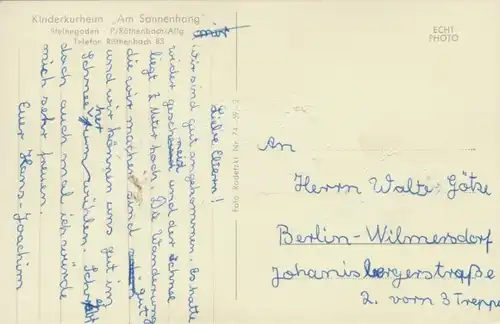 Kinderkurheim „Am Sonnenhang"
Steinegaden P/Röthenbach/Allg
Telefon Röthenbach 83
ECHT
PHOTO
Liebe Eltern!
Wir sind gut angekommen. Es hatte
wider geschneid und der Schnee
liegt 2 Meter hoch. Die Wanderung
die wir machen sind gut
und wir können uns gut im
Schnee wühlen. Schreibt
doch auch mal ich würde
mich sehr freuen.
Euer Hans-Joachim
Foto Radetzki Nr.
An
Herrn Walte Götze
Berlin-Wilmersdorf
Johanisbergerstraße
2. vorn 3 Treppe